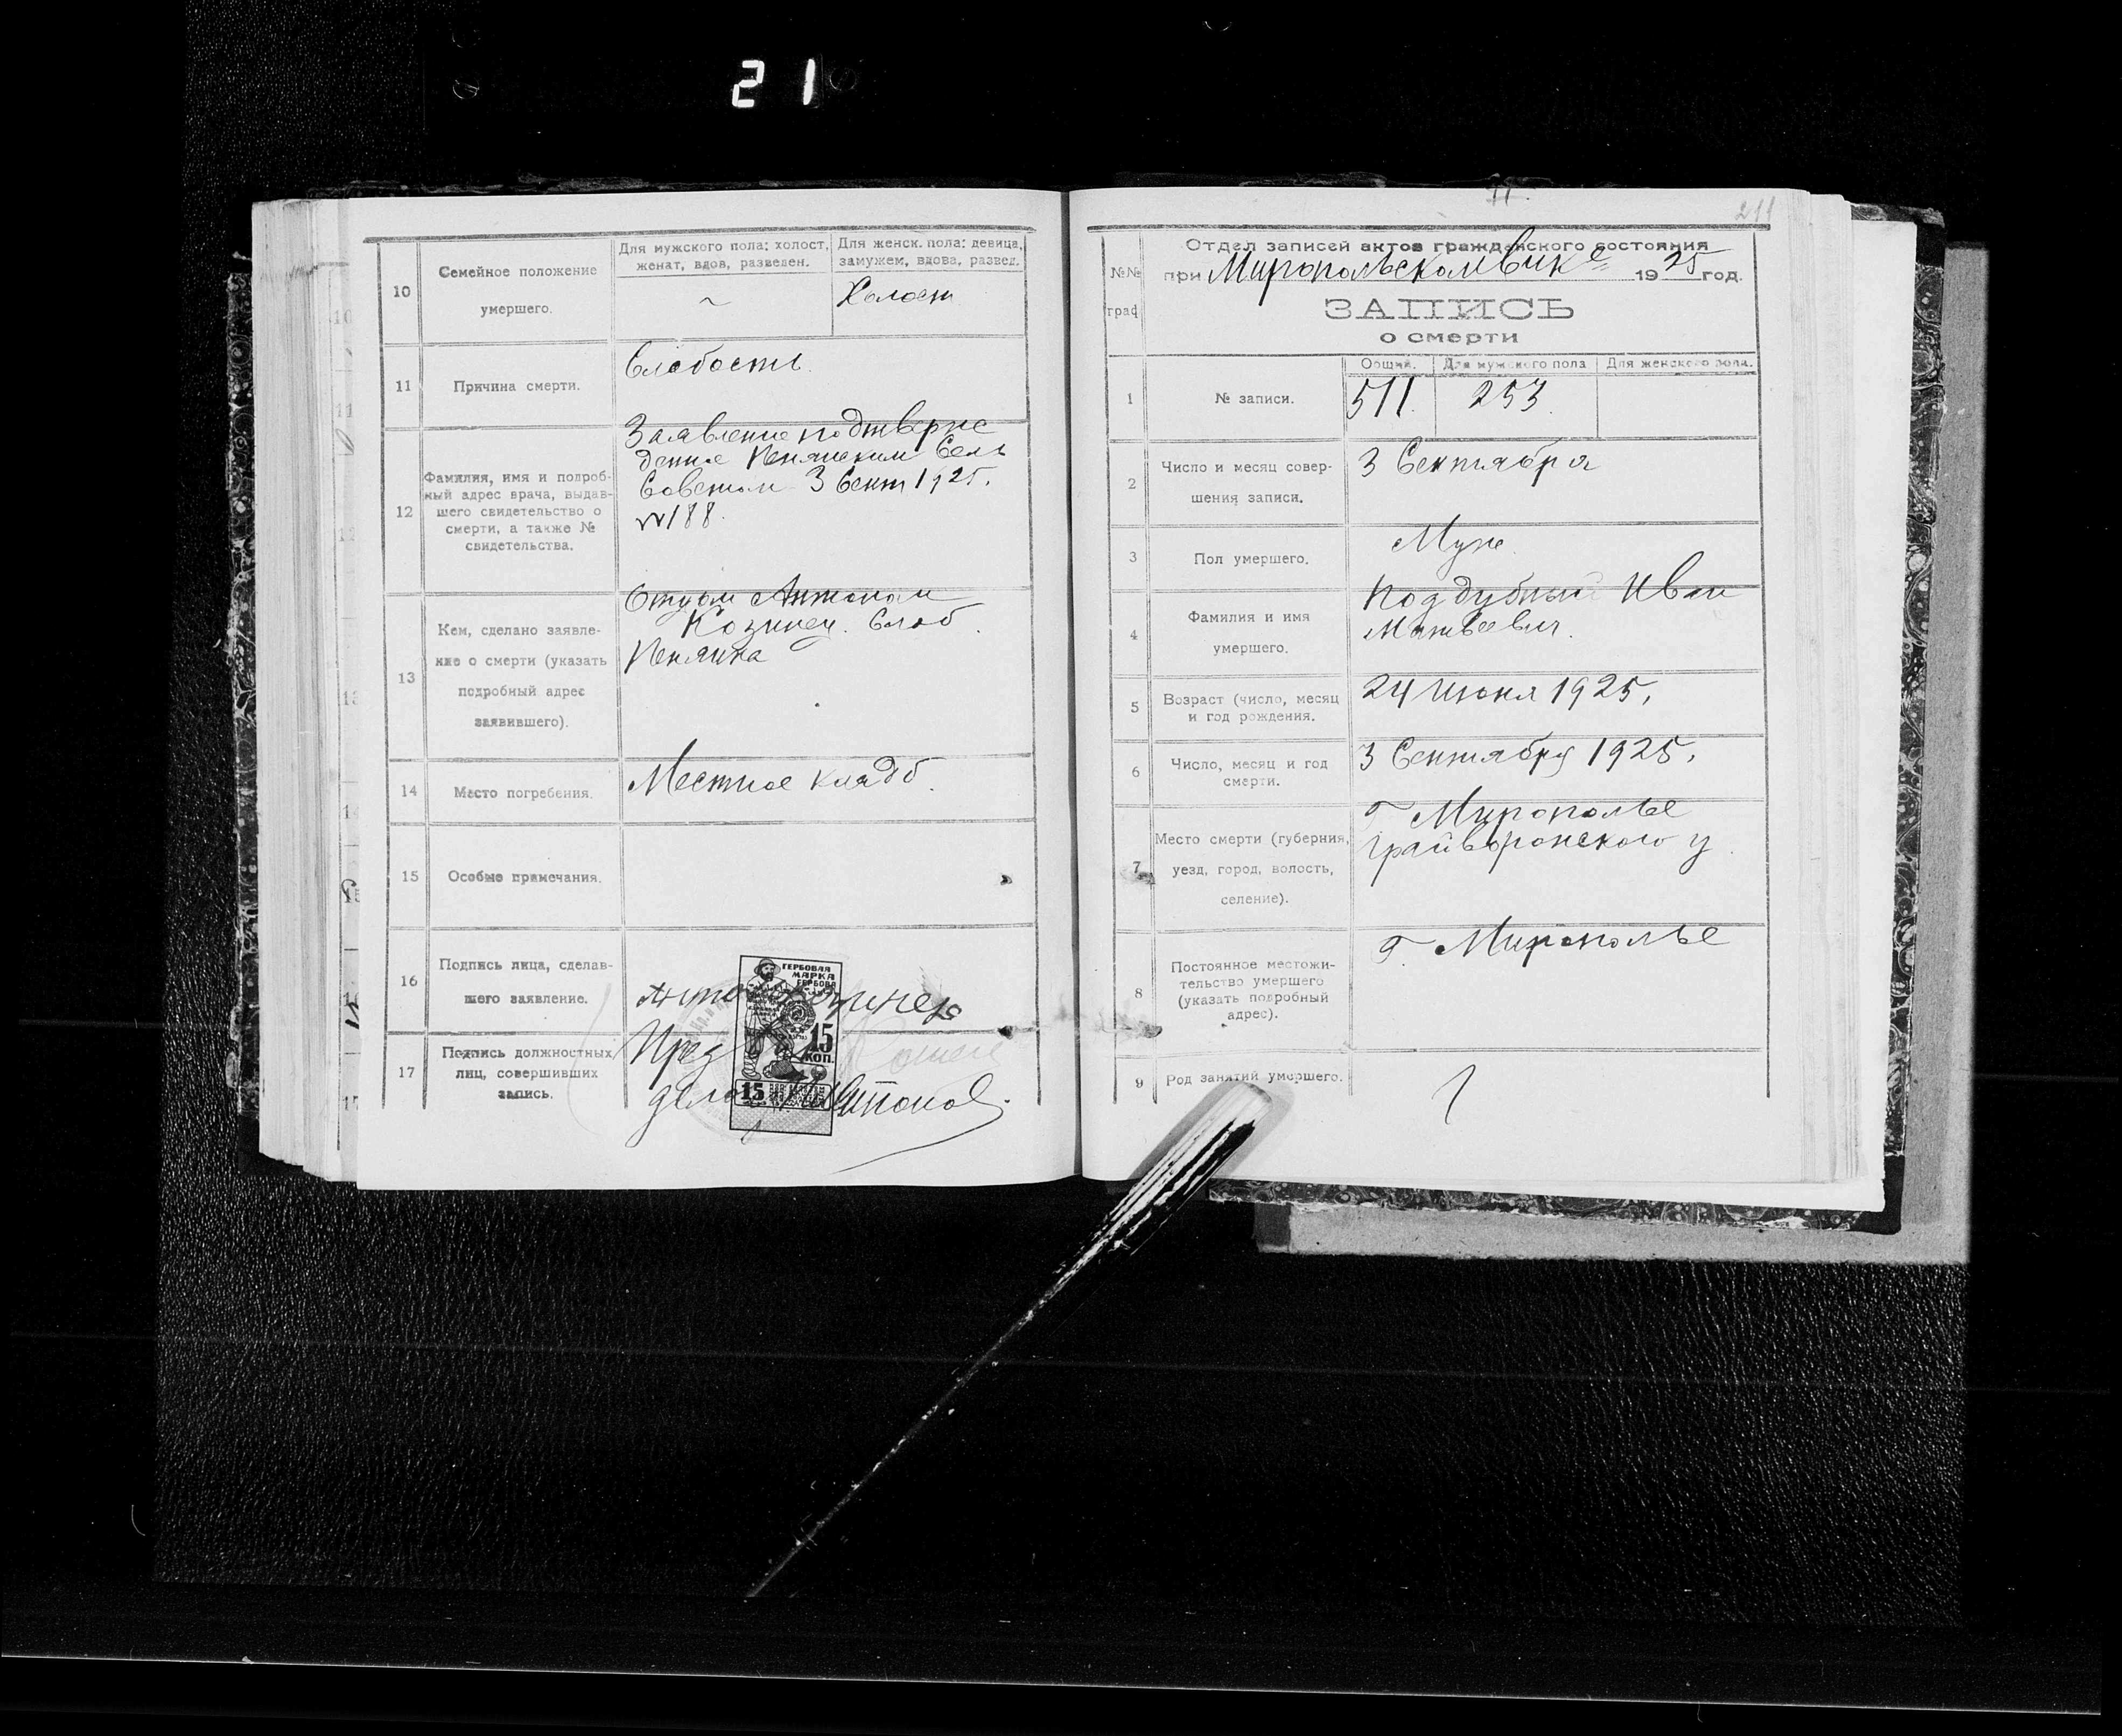 21
10
Семейное положение
умершего.
Для мужского пола: холост,
женат, вдов, разведен.
Для женск. пола: девица,
замужем, вдова, развед.
~
Холост
11
Причина смерти.
Слабость.
12
Фамилия, имя и подроб-
ный адрес врача, выдав-
шего свидетельство о
смерти, а также №
свидетельства.
Заявление подтверж
дение Пенянским Сель
Советом 3 Сент 1925.
№188.
13
Кем, сделано заявле-
ние о смерти (указать
подробный адрес
заявившего).
Отцом Антоном
Козинец. Слоб.
Пенянка
14
Место погребения.
Местное кладб.
15
Особые примечания.
16
Подпись лица, сделав-
шего заявление.
17
Подпись должностных
лиц, совершивших
запись.
Пред
ГЕРБОВАЯ
МАРКА
15
КОП.
15
211
№№
граф
Отдел записей актов гражданского состояния
при Миропольском вике 1925 год.
ЗАПИСЬ
о смерти
1
№ записи.
Общий.
Для мужского пола
Для женского пола.
511.
253.
2
Число и месяц совер-
шения записи.
3 Сентября
3
Пол умершего.
Муж.
4
Фамилия и имя
умершего.
Поддубный Иван
Матвеевич.
5
Возраст (число, месяц
и год рождения.
24 Июня 1925,
6
Число, месяц и год
смерти.
3 Сентября 1925,
7
Место смерти (губерния,
уезд, город, волость,
селение).
г Мирополье
Грайворонского у.
8
Постоянное местожи-
тельство умершего
(указать подробный
адрес).
г. Мирополье
9
Род занятий умершего.